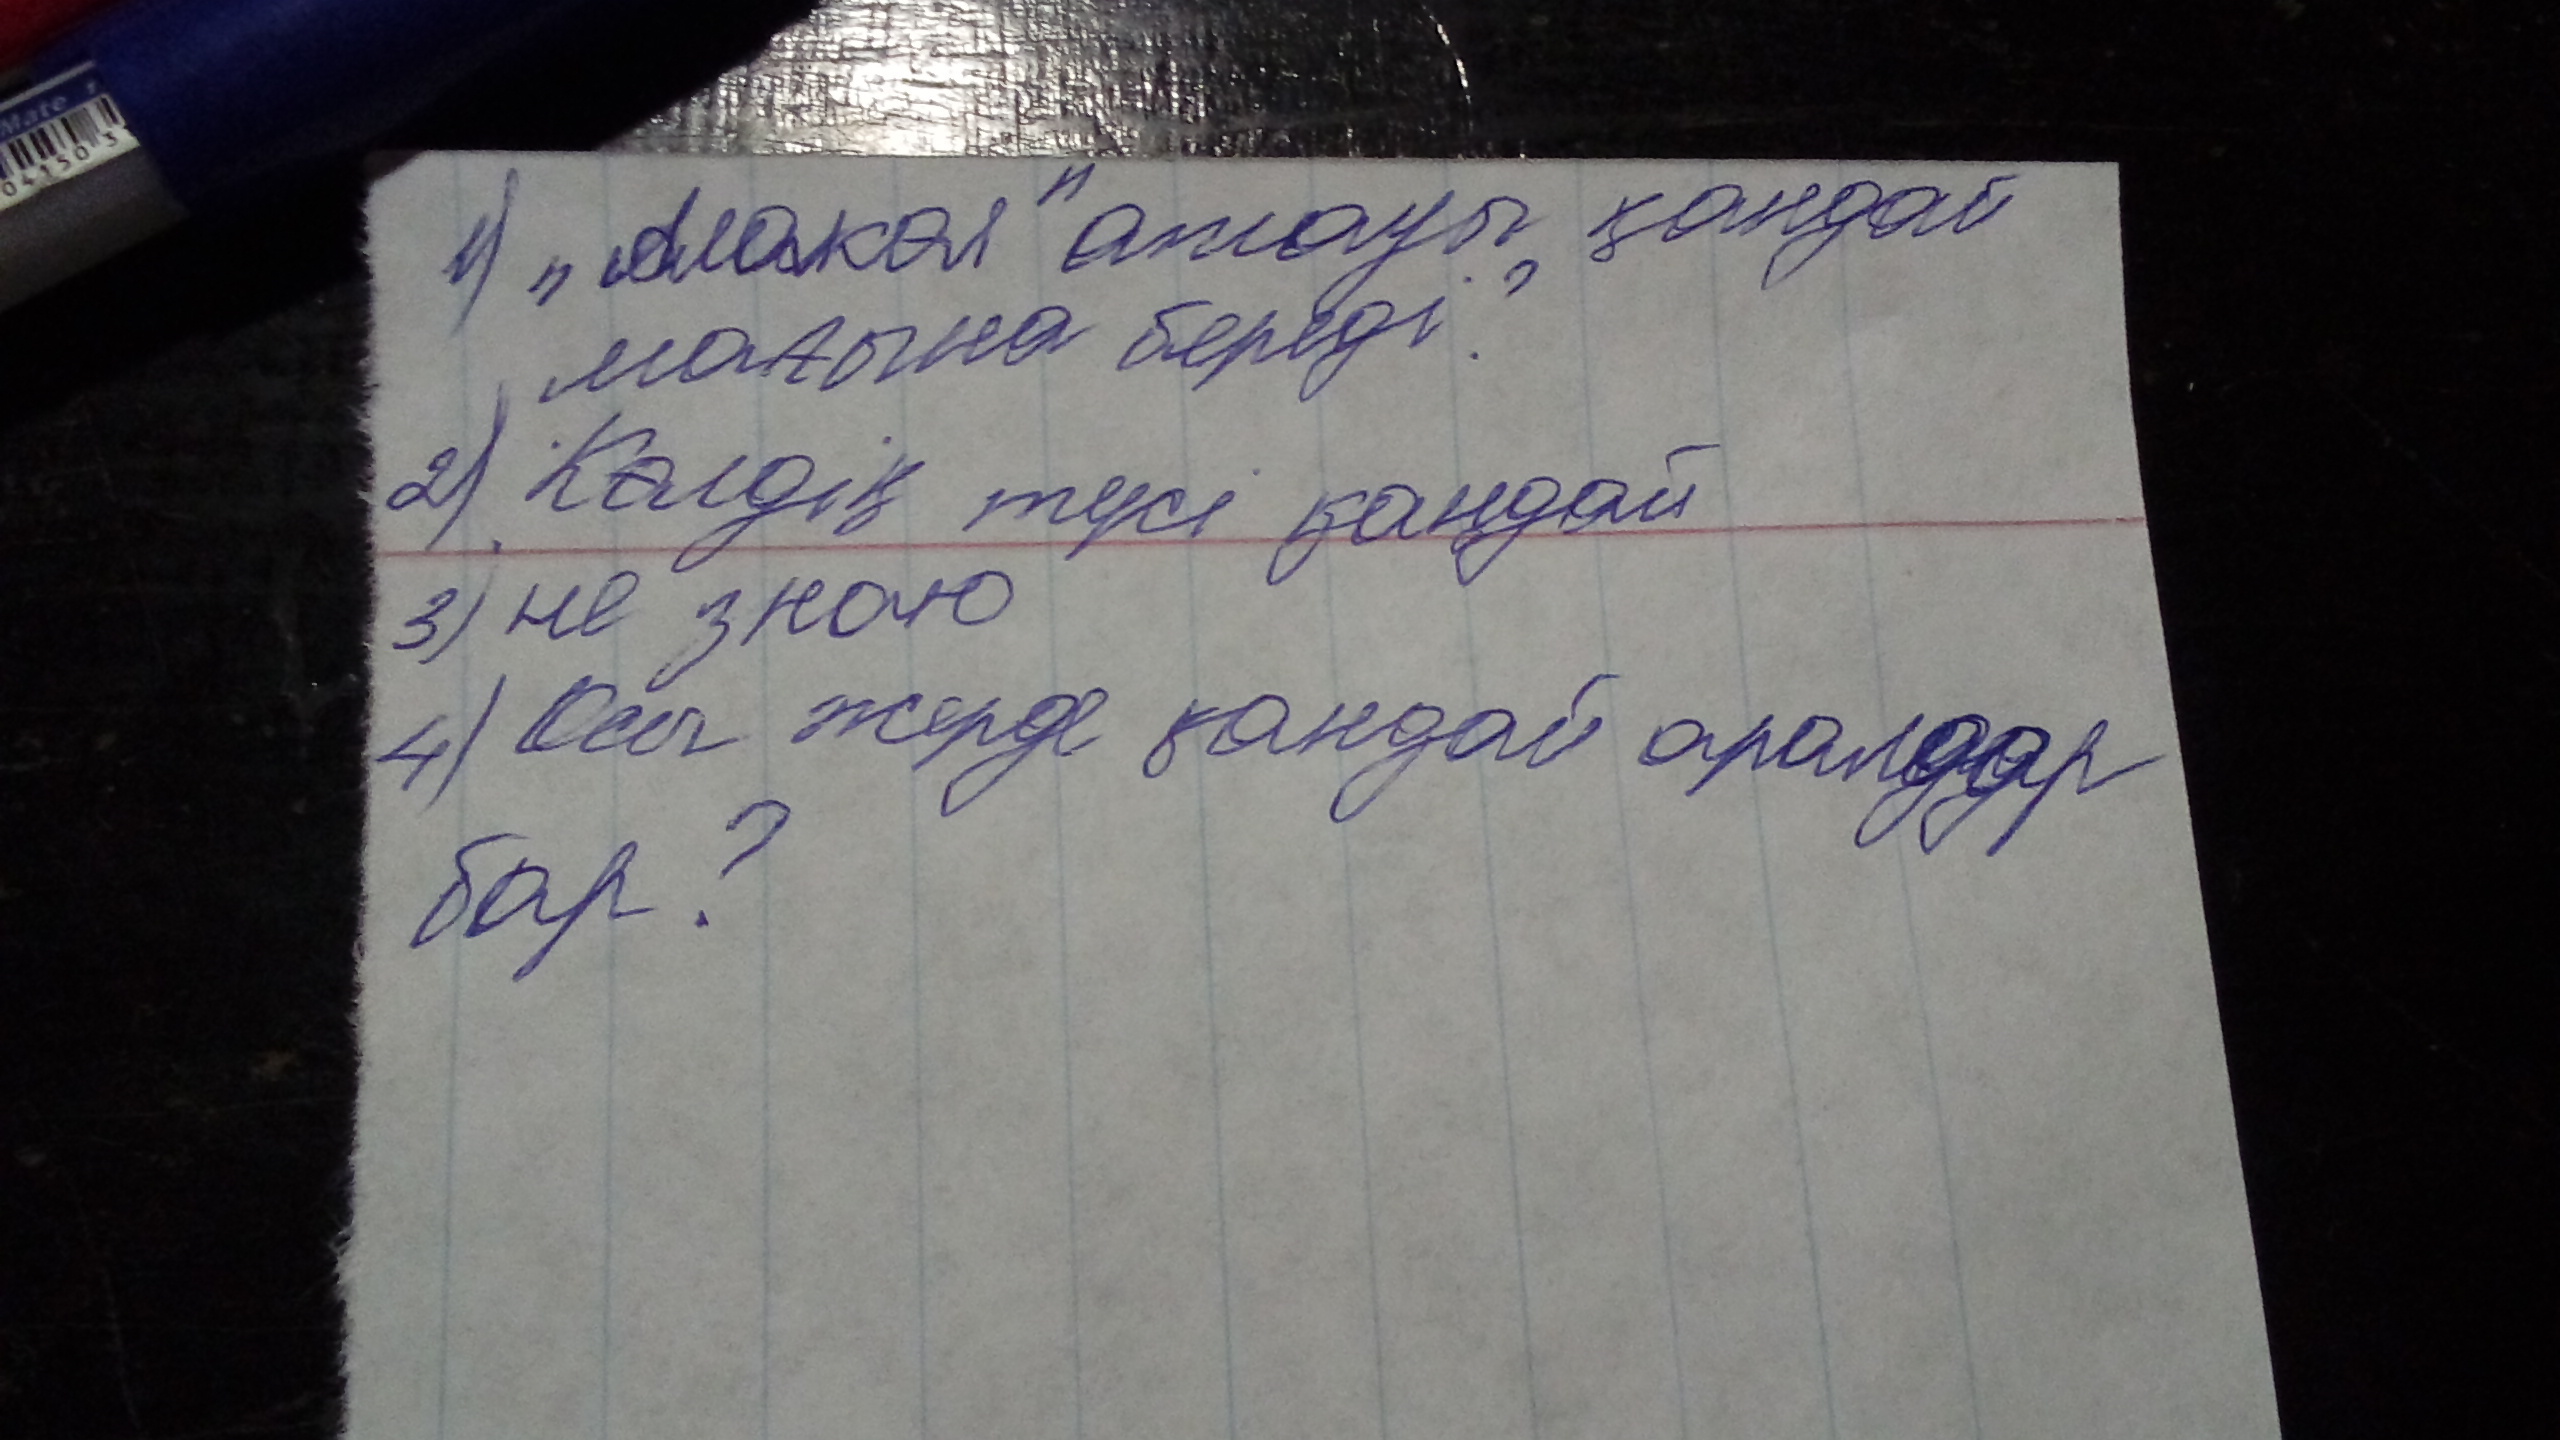 Mate 1
04150 3
1) „Алакөл" атауы қандай
мағына береді?
2) Көлдің түсі қандай
3) не знаю
4) Осы жерде қандай аралдар
бар?